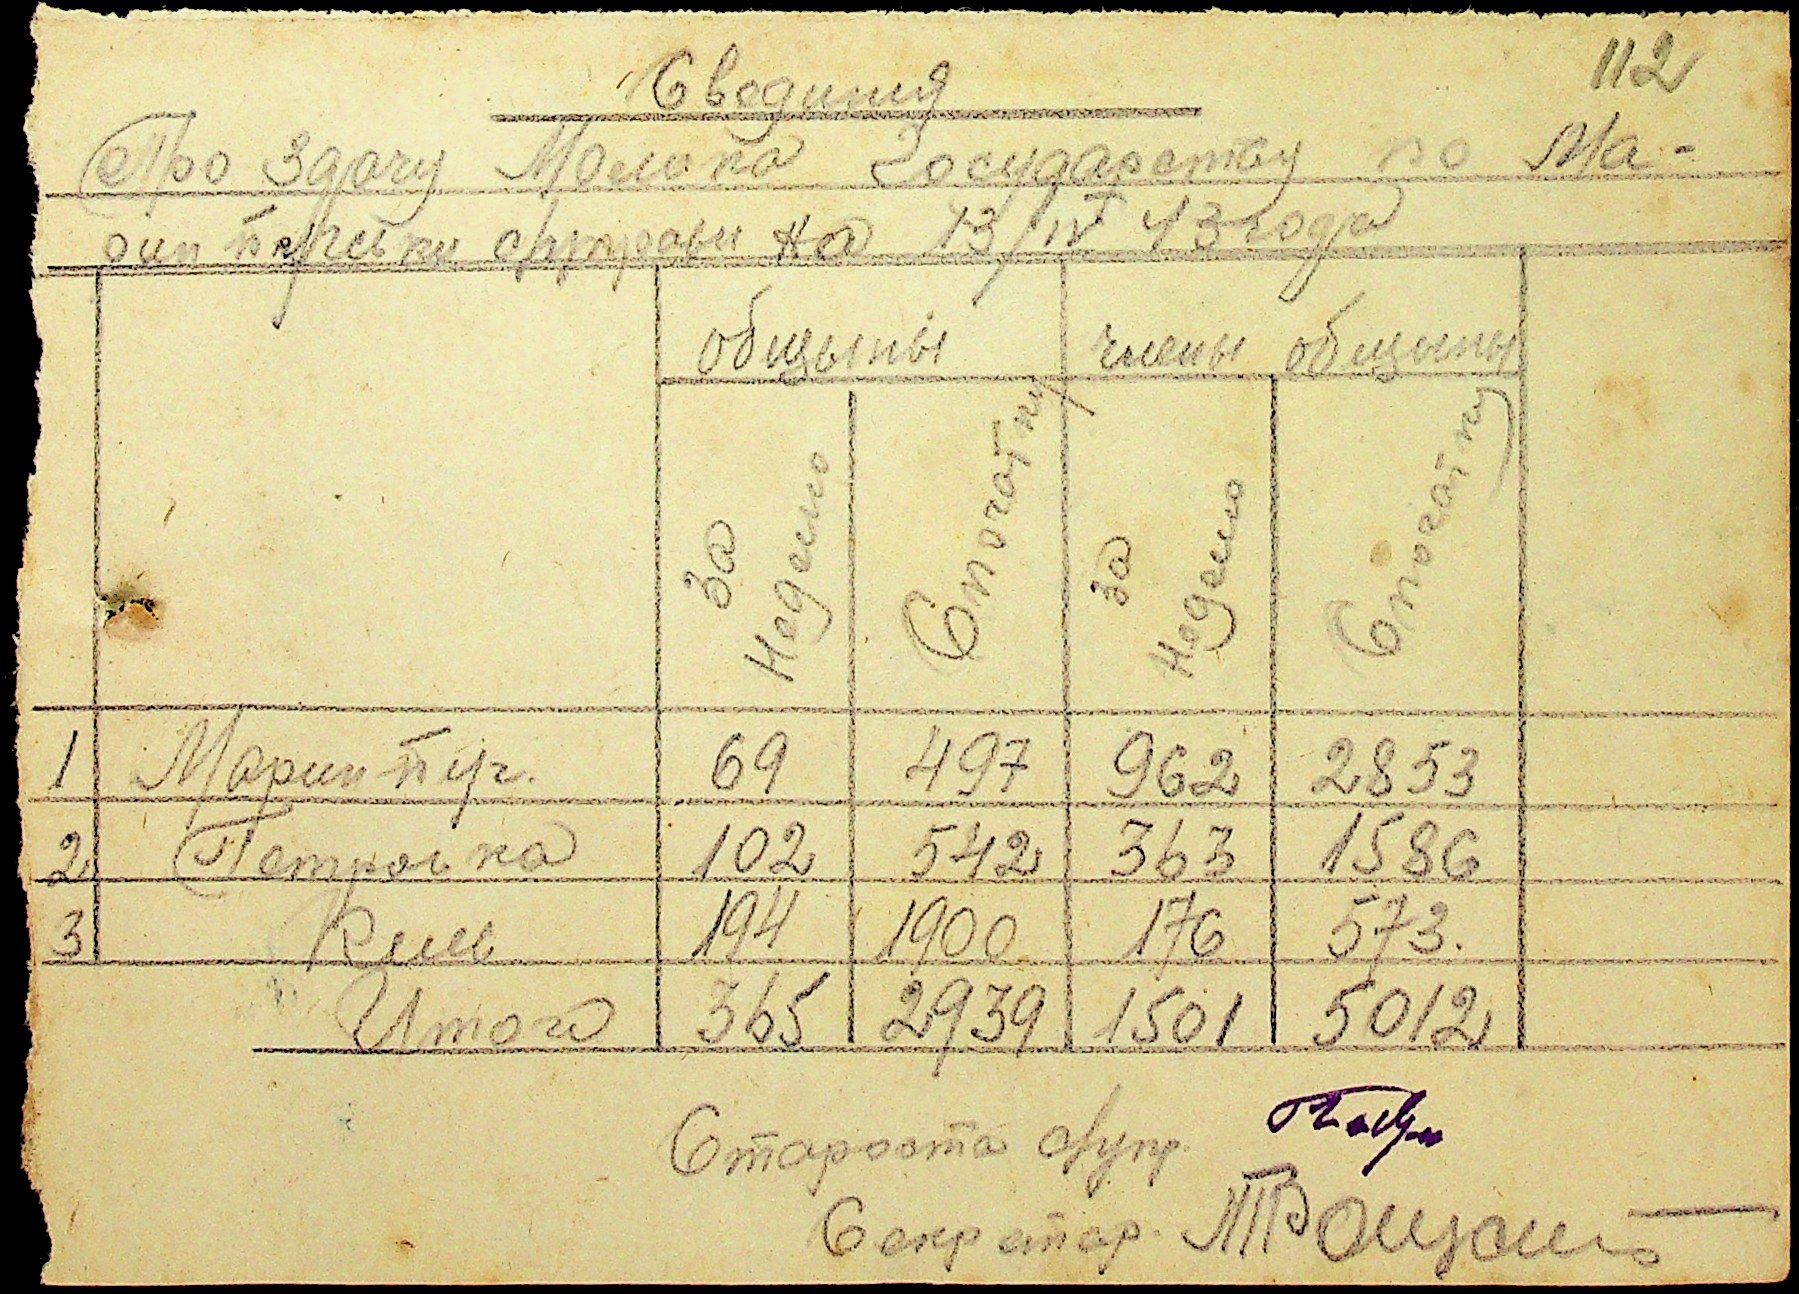 112
Сводиния
Про Здачу Молока Государству по Ма-
на 13/IV 43 года
общыны члены общыны
за Неделю Спочатку за Неделю Спочатку
1 Мариипуч. 69 497 962 2853
2 Петровка 102 542 363 1586
3 194 1900 176 573.
Итого 365 2939 1501 5012
Староста
Секретар.